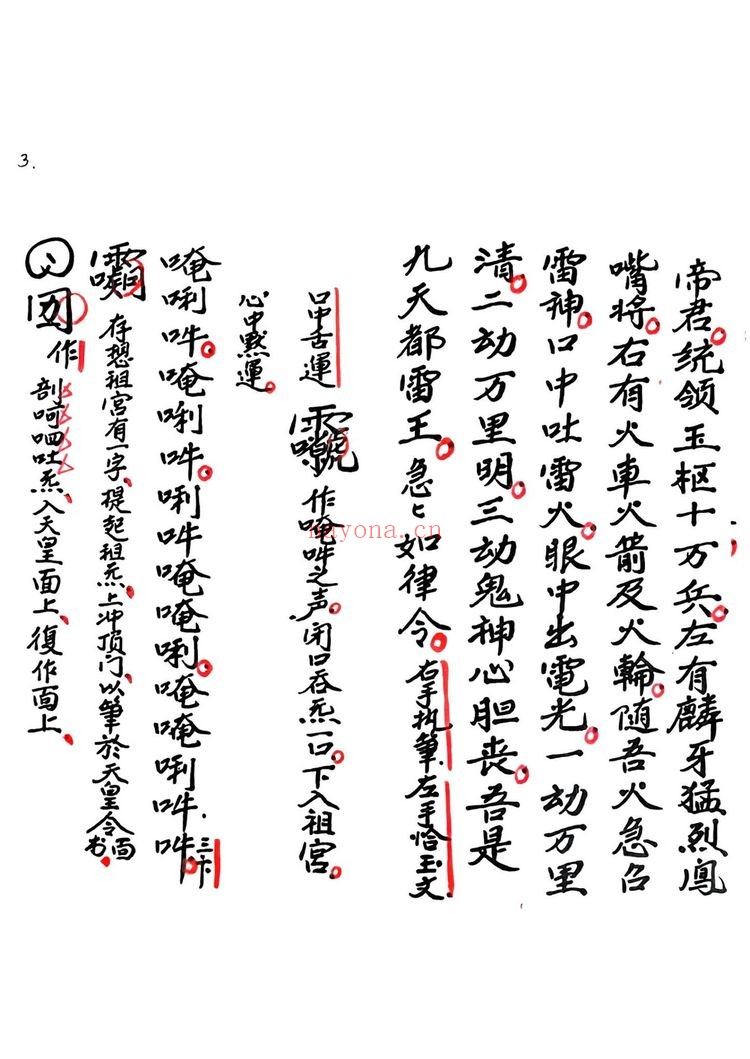 3.
帝君。统领玉枢十万兵。左有麟牙猛烈鳳
嘴将。右有火車火箭及火輪。随吾火急召
雷神。口中吐雷火。眼中出電光。一动万里
清。二动万里明。三动鬼神心胆丧。吾是
九天都雷王。急々如律令。右手执筆、左手恰玉文
口中舌運
作唵吽之声。闭口吞炁一口。下入祖宫。
心中默運。
唵唎吽。唵唎吽。唎吽唵唵唎。唵唵唎吽、吽。三卞
存想祖宫有一字、提起祖炁、上冲顶门、以筆於天皇令面书、
作
剖呵呬吐炁、入天皇面上、復作面上、
nayona.cn